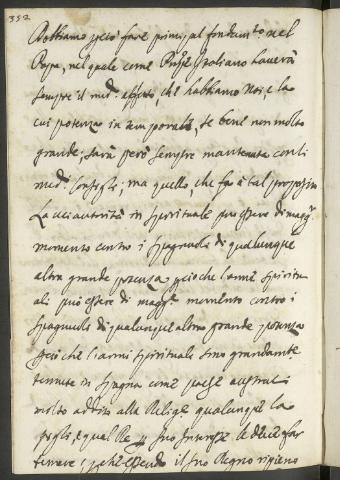 352
Dobbiamo però fare princip.al fondam.to nel
Papa, nel quale come Prñpe Italiano haverà
sempre il med.o affetto, che habbiamo Noi, e la
cui potenza in temporale, se bene non molto
grande, sarà però sempre mantenuta con li
med.i consigli; ma quello, che fa à tal proposito
La cui autorità in spirituale può essere di magg.r
momento contro i spagnuoli di qualunque
altra grande potenza perche l'arme spiritu
ali può essere di magg.r momento contro i
spagnuoli di qualunque altra grande potenza
perche l'armi spirituale sono grandemte
temute in Spagna come paese
molto addito alla Relige qualunque la
pigli, e qual Re suo Interesse le deve far
temere; perche essendo il suo Regno ripieno